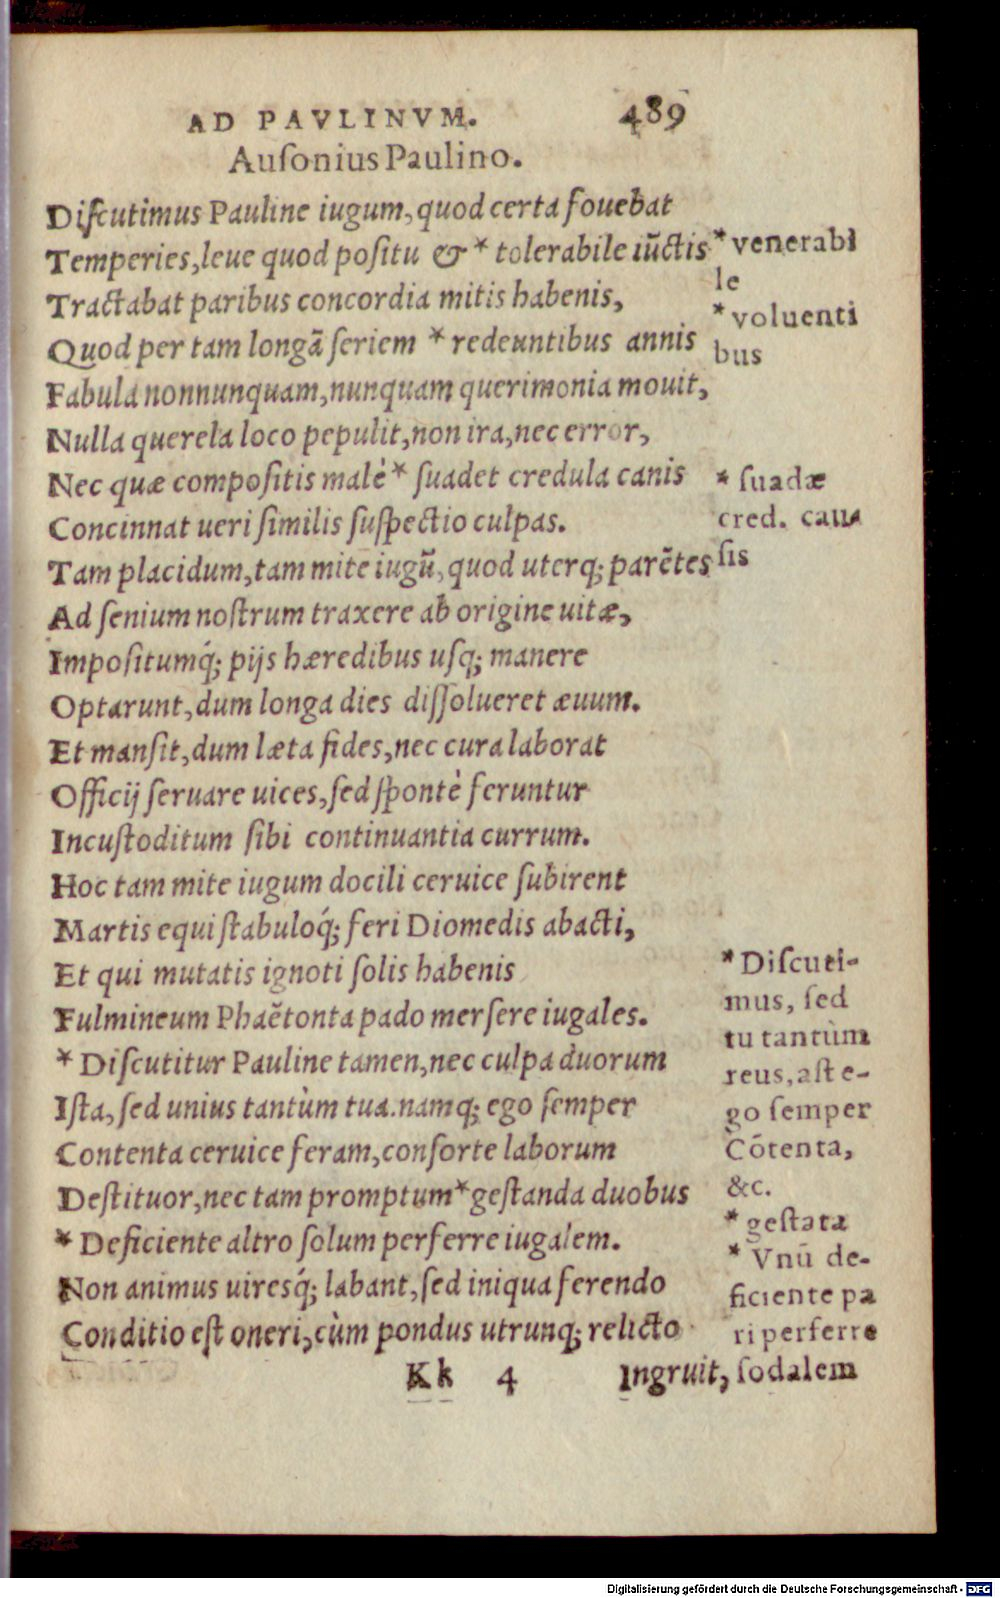 AD PAVLINVM. 489
Auſonius Paulino.
Diſcutimus Pauline iugum, quod certa fouebat
Temperies, leue quod poſitu & * tolerabile iūctis
Tractabat paribus concordia mitis habenis,
Quod per tam longā ſeriem * redeuntibus annis
Fabula nonnunquam, nunquam querimonia mouit,
Nulla querela loco pepulit, non ira, nec error,
Nec quæ compoſitis malè * ſuadet credula canis
Concinnat ueri ſimilis ſuſpectio culpas.
Tam placidum, tam mite iugū, quod uterq; parētes
Ad ſenium noſtrum traxere ab origine uitæ,
Impoſitumq́; pijs hæredibus uſq; manere
Optarunt, dum longa dies diſſolueret æuum.
Et manſit, dum læta fides, nec cura laborat
Officij ſeruare uices, ſed ſpontè feruntur
Incuſtoditum ſibi continuantia currum.
Hoc tam mite iugum docili ceruice ſubirent
Martis equi ſtabuloq́; feri Diomedis abacti,
Et qui mutatis ignoti ſolis habenis
Fulmineum Phaëtonta pado merſere iugales.
* Diſcutitur Pauline tamen, nec culpa duorum
Iſta, ſed unius tantùm tua. namq; ego ſemper
Contenta ceruice feram, conſorte laborum
Deſtituor, nec tam promptum * geſtanda duobus
* Deficiente altro ſolum perferre iugalem.
Non animus uiresq́; labant, ſed iniqua ferendo
Conditio eſt oneri, cùm pondus utrunq; relicto
Kk 4 Ingruit,
* venerabi
le
* voluenti
bus
* ſuadæ
cred. cau
ſis
* Diſcuti-
mus, ſed
tu tantùm
reus, aſt e-
go ſemper
Cōtenta,
&c.
* geſtata
* Vnū de-
ficiente pa
ri perferre
ſodalem
Digitalisierung gefördert durch die Deutsche Forschungsgemeinschaft - DFG